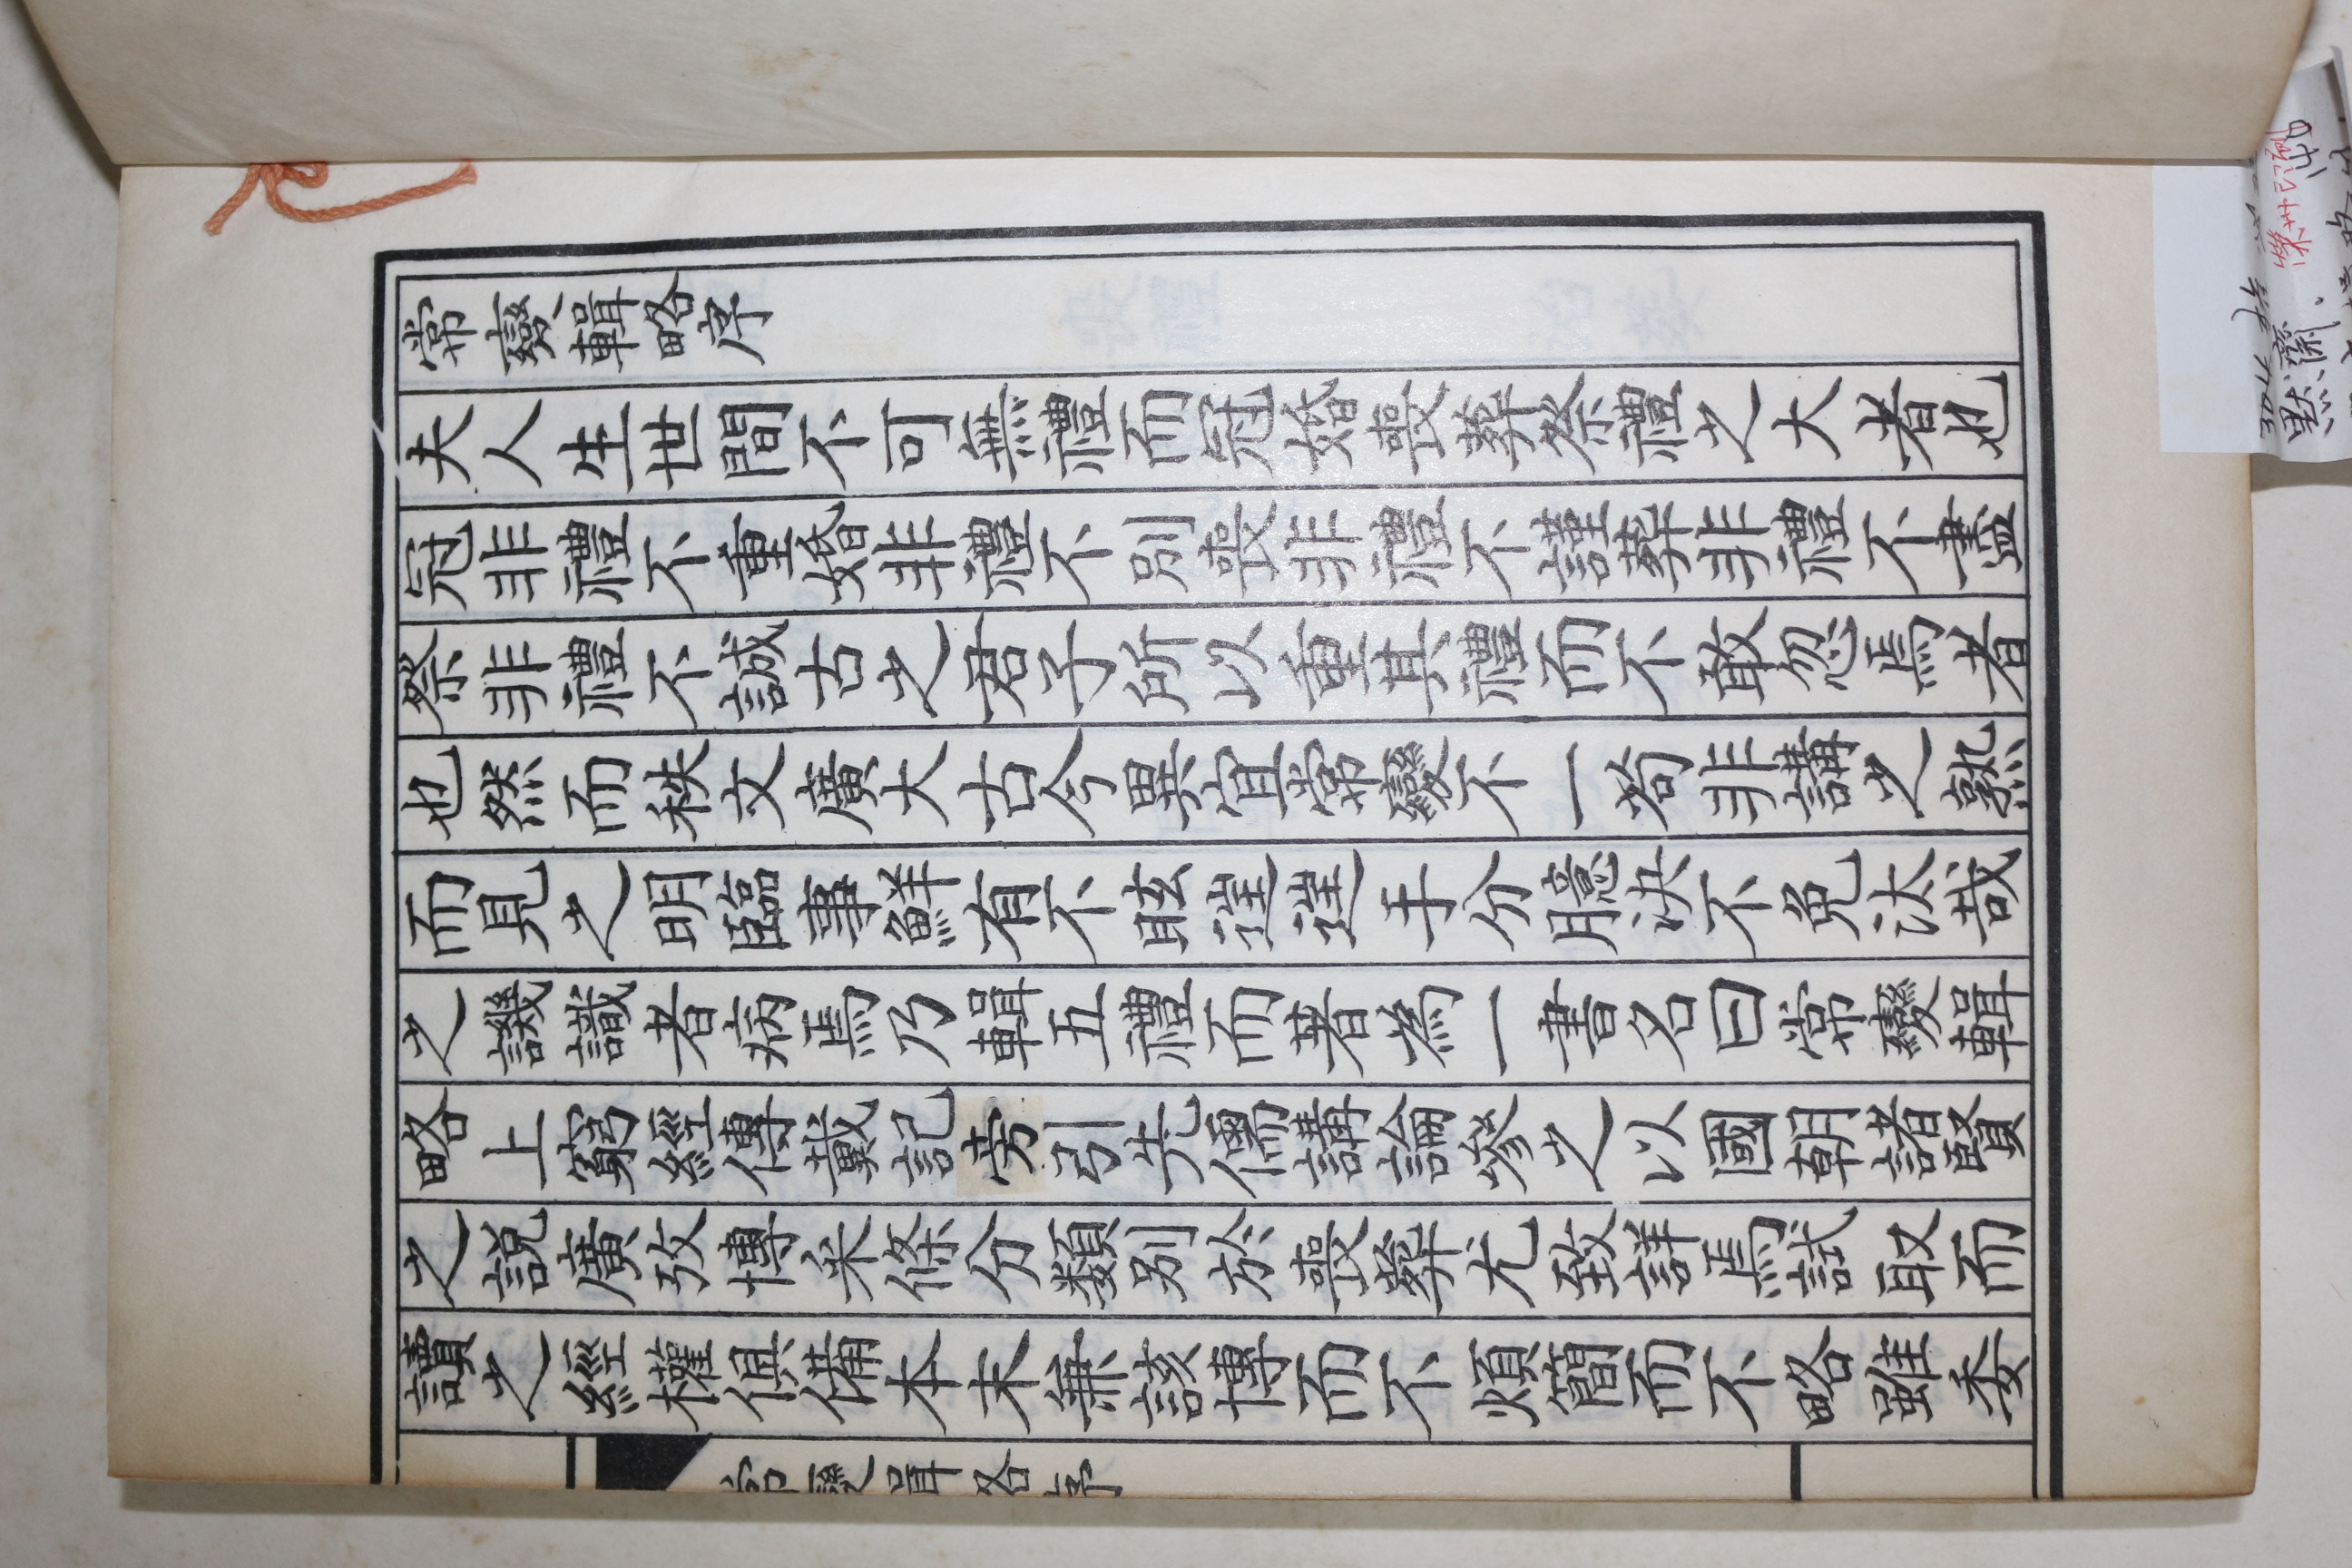 常變輯略序
夫人生世間不可無禮而冠婚喪葬祭禮之大者也
冠非禮不重婚非禮不別喪非禮不謹葬非禮不盡
祭非禮不誠古之君子所以重其禮而不敢忽焉者
也然而秩文廣大古今異宜常變不一苟非講之熟
而見之明臨事鮮有不眩遑遑手分臆决不免汰哉
之譏識者病焉乃輯五禮而著為一書名曰常變輯
略上窮經傳戴記旁引先儒講論參之以國朝諸賢
之説廣攷博采條分類別於喪葬尤致詳焉試取而
讀之經權俱備本末兼該博而不煩簡而不略雖委
常變輯略序
默齋
榮州印刷
140